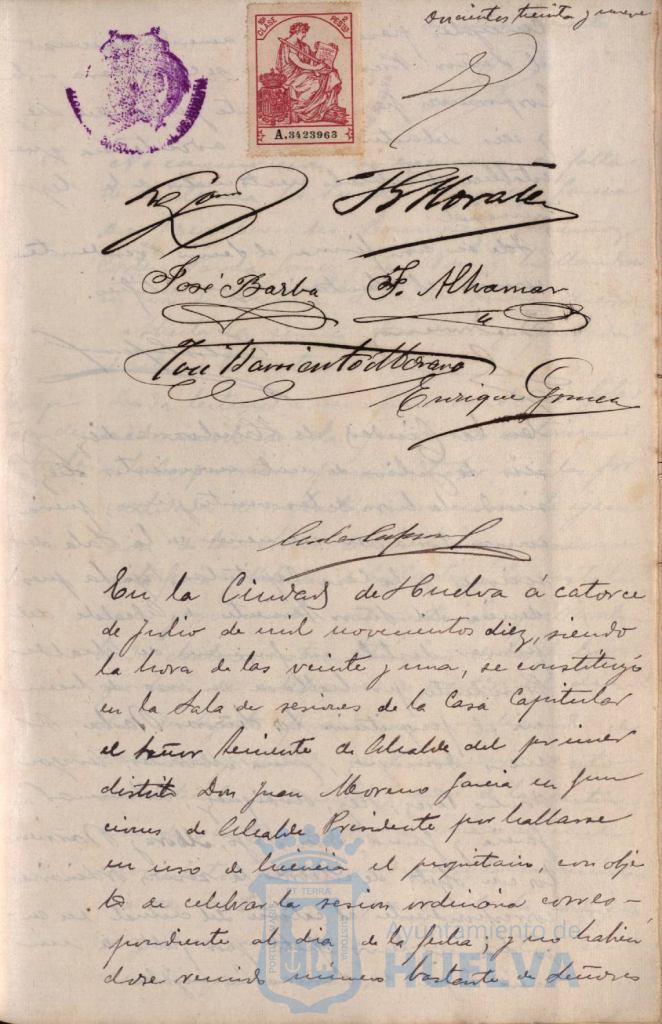 Doscientos treinta y nueve
10ª CLASE 2 PESETAS
A.3423963
José Barba F. Alhamar
José Barrientos Moreno
Enrique Gomez
En la Ciudad de Huelva á catorce
de Julio de mil novecientos diez, siendo
la hora de las veinte y una, se constituyó
en la Sala de sesiones de la Casa Capitular
el Señor Teniente de Alcalde del primer
distrito Don Juan Moreno Garcia en fun
ciones de Alcalde Presidente por hallarse
en uso de licencia el propietario, con obje
to de celebrar la sesion ordinaria corres-
pondiente al dia de la fecha; y no habien
dose reunido numero bastante de Señores
PORTUS MARIS ET TERRA CUSTODIA
Ayuntamiento de
HUELVA